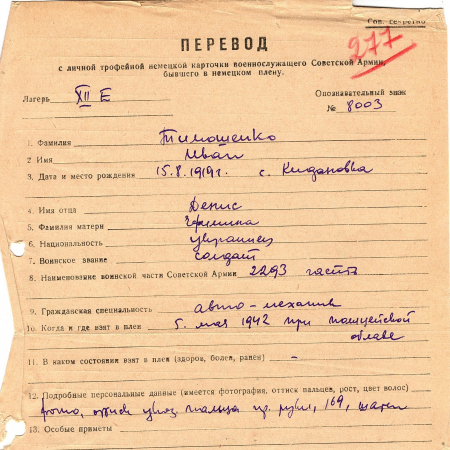 Сов. секретно
ПЕРЕВОД
277
с личной трофейной немецкой карточки военнослужащего Советской Армии,
бывшего в немецком плену.
Лагерь XII E
Опознавательный знак
№ 8003
1. Фамилия Тимошенко
2 Имя Иван
3. Дата и место рождения 15.8.1919г. с. Кидановка
4. Имя отца Денис
5. Фамилия матери
6. Национальность украинец
7. Воинское звание солдат
8. Наименование воинской части Советской Армии 2293
9. Гражданская специальность авто-механик
10. Когда и где взят в плен 5. мая 1942 при полицейской
облаве
11. В каком состоянии взят в плен (здоров, болен, ранен) –
12. Подробные персональные данные (имеется фотография, оттиск пальцев, рост, цвет волос)
фото, оттиск указ. пальца пр. руки, 169, шатен
13. Особые приметы